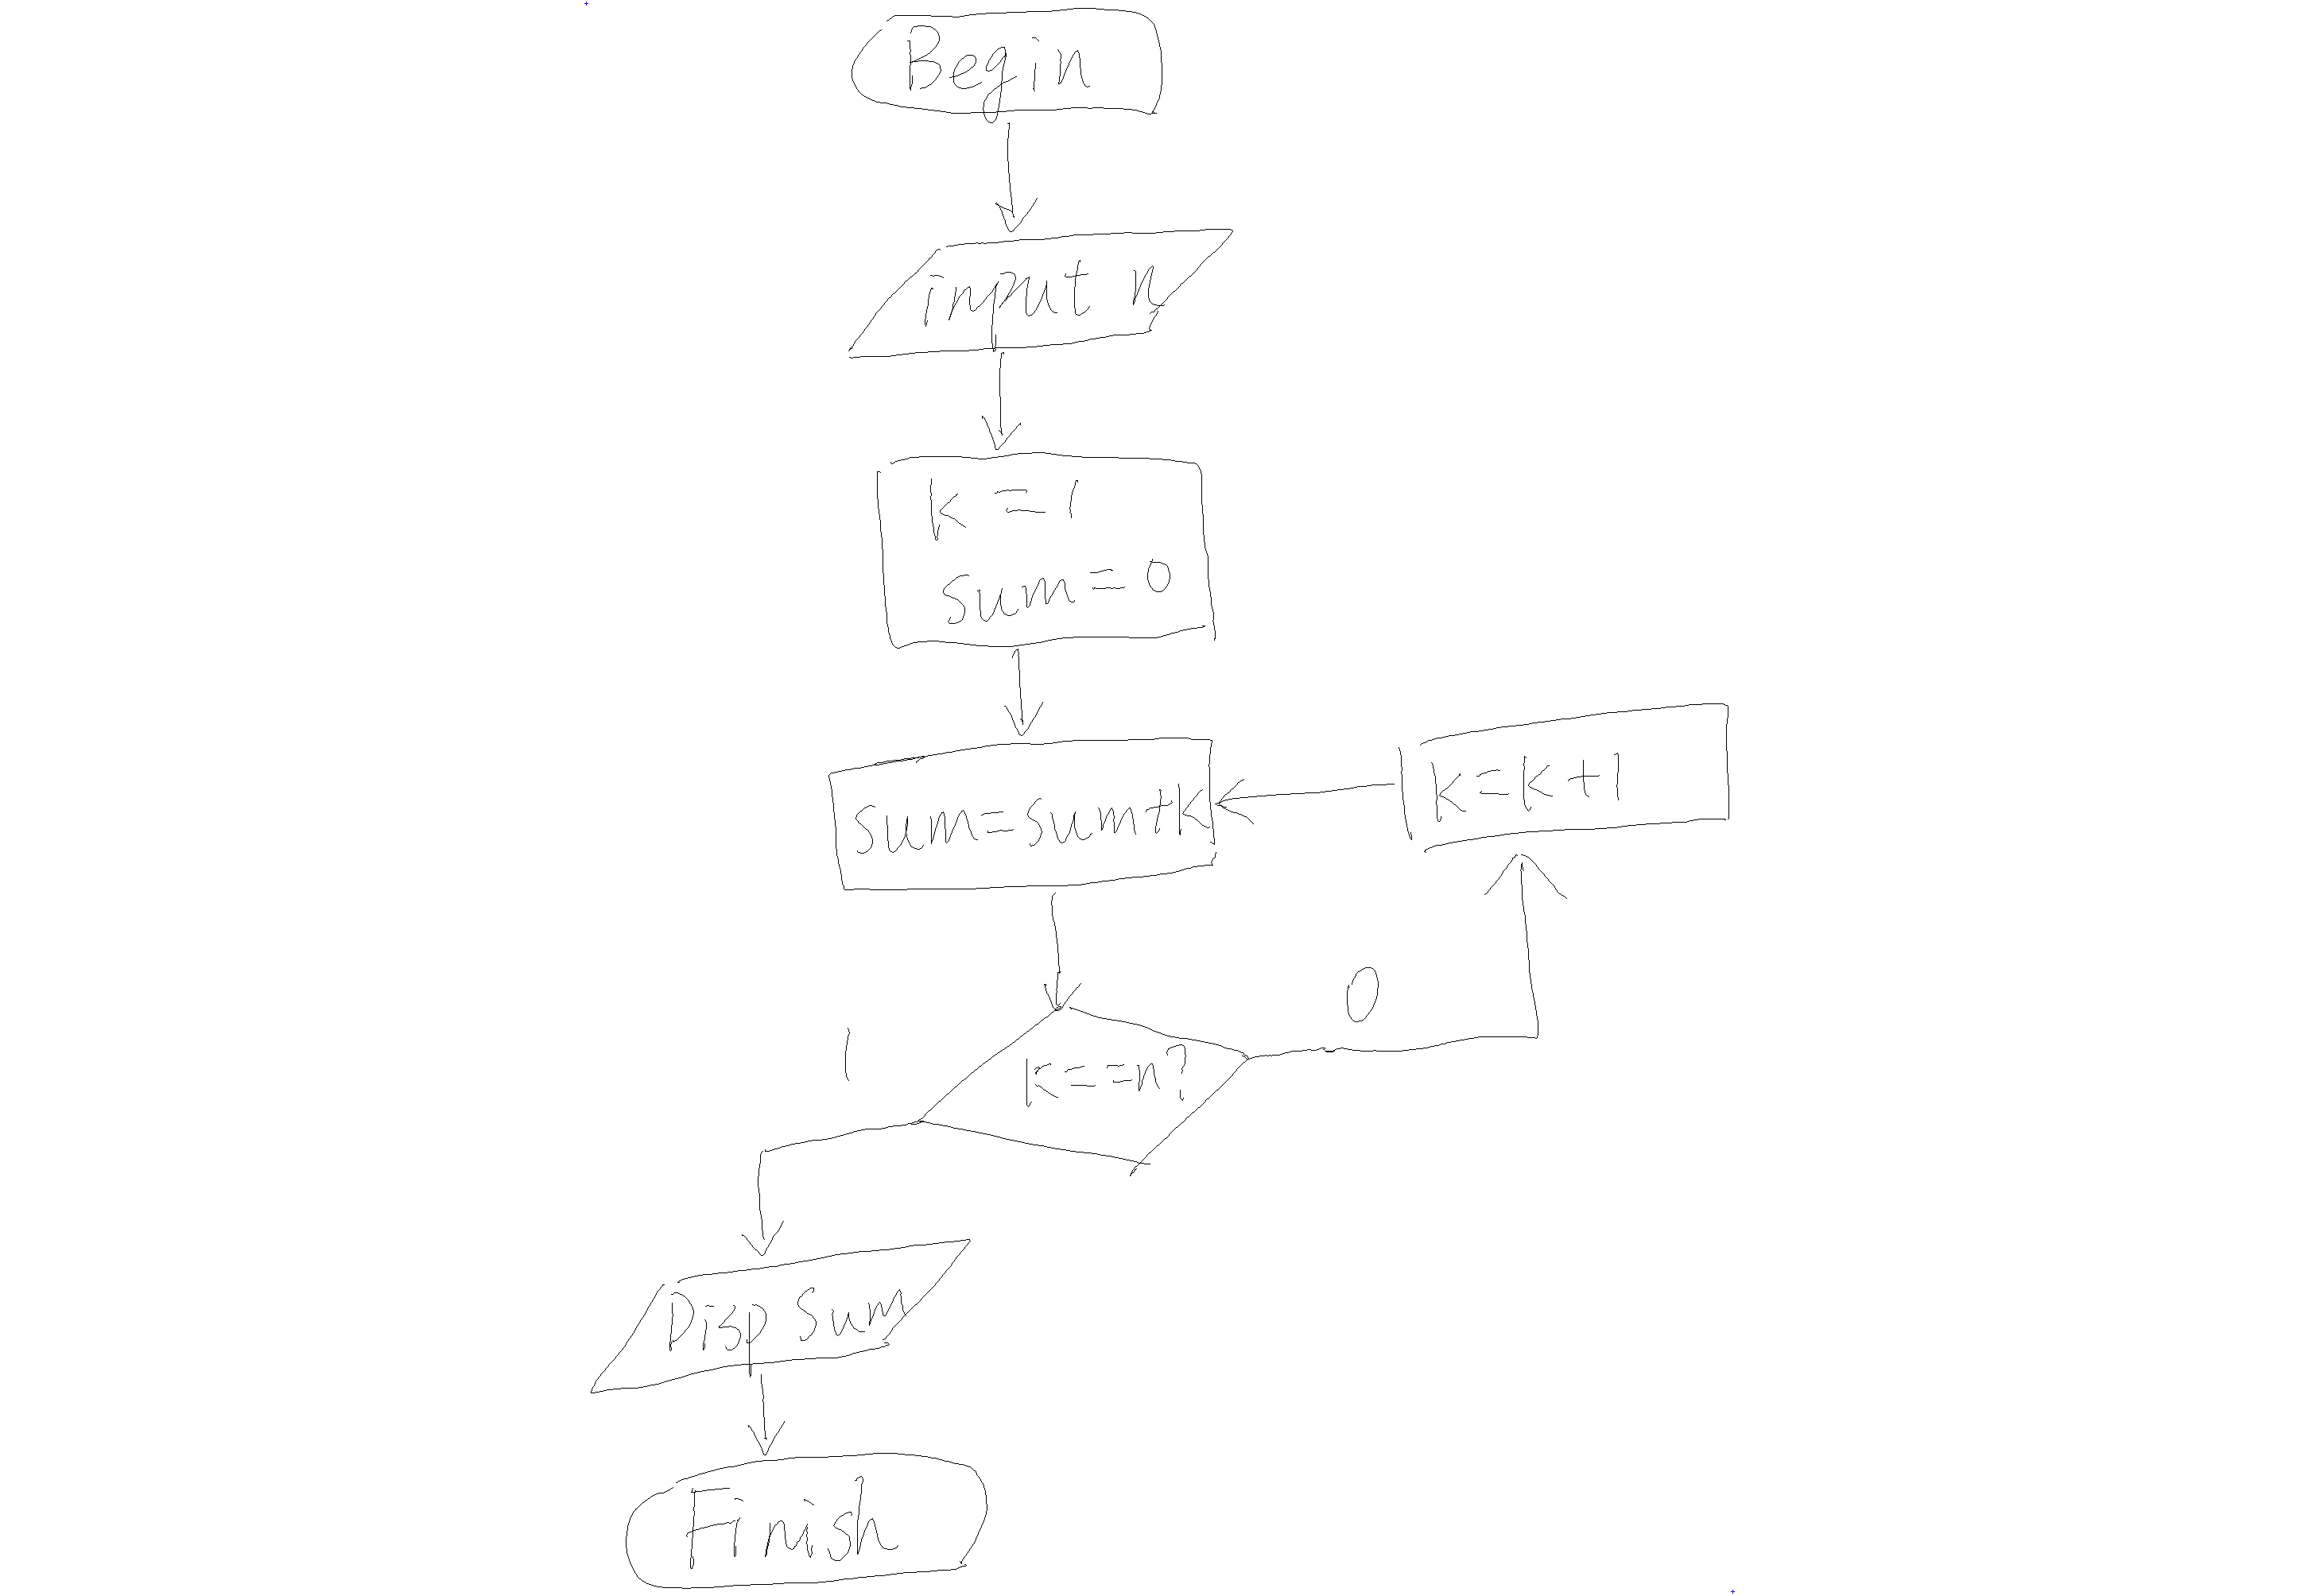 Begin
input n
k=1
sum=0
sum=sum+k
k=k+1
0
1
k==n?
Disp sum
Finish